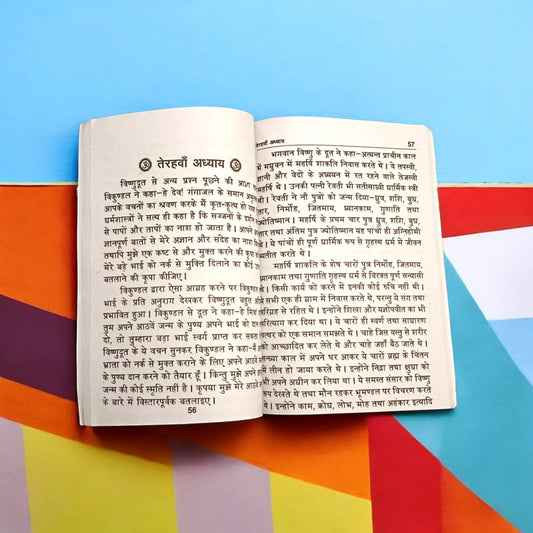 ॐ तेरहवाँ अध्याय ॐ
विष्णुदूत से अन्य प्रश्न पूछने की आज्ञा
विकुण्डल ने कहा-हे देव! गंगाजल के समान
आपके वचनों का श्रवण करके मैं कृत-कृत्य हो
धर्मशास्त्रों ने सत्य ही कहा है कि सज्जनों के दर्शन
से पापों और तापों का नाश हो जाता है। आपने
ज्ञानपूर्ण बातों से मेरे अज्ञान और संदेह का नाश
तथापि मुझे एक कष्ट से और मुक्त करने की कृपा
मेरे बड़े भाई को नर्क से मुक्ति दिलाने का कोई
बतलाने की कृपा कीजिए।
विकुण्डल द्वारा ऐसा आग्रह करने पर
भाई के प्रति अनुराग देखकर विष्णुदूत बहुत
प्रभावित हुआ। विकुण्डल से दूत ने कहा-हे मित्र
तुम अपने आठवें जन्म के पुण्य अपने भाई को दान
दो, तो तुम्हारा बड़ा भाई स्वर्ग प्राप्त कर सकता
विष्णुदूत के ये वचन सुनकर विकुण्डल ने कहा-मैं
भ्राता को नर्क से मुक्त कराने के लिए अपने आठवें
के पुण्य दान करने को तैयार हूँ। किन्तु मुझे अपने
जन्म की कोई स्मृति नहीं है। कृपया मुझे मेरे आठवें
के बारे में विस्तारपूर्वक बतलाइए।
56
तेरहवाँ अध्याय 57
भगवान विष्णु के दूत ने कहा-अत्यन्त प्राचीन काल
में मधुवन में महर्षि शाकलि निवास करते थे। वे तपस्वी,
ज्ञानी और वेदों के अध्ययन में रत रहने वाले तेजस्वी
महर्षि थे। उनकी पत्नी रेवती भी सतीसाध्वी धार्मिक स्त्री
थी। रेवती ने नौ पुत्रों को जन्म दिया-ध्रुव, शशि, बुध,
तार, निर्मोह, जितमाय, ध्यानकाम, गुणाति तथा
ज्योतिष्मान। महर्षि के प्रथम चार पुत्र ध्रुव, शशि, बुध,
तार तथा अंतिम पुत्र ज्योतिष्मान यह पांचों ही अग्निहोमी
थे। ये पांचों ही पूर्ण धार्मिक रूप से गृहस्थ धर्म में जीवन
व्यतीत करते थे।
महर्षि शाकलि के शेष चारों पुत्र निर्मोह, जितमाय,
ध्यानकाम तथा गुणाति गृहस्थ धर्म से विरक्त पूर्ण सन्यासी
थे। किसी कार्य को करने में इनकी कोई रुचि नहीं थी।
ये सभी एक ही ग्राम में निवास करते थे, परन्तु ये संग तथा
परिग्रह से रहित थे। इन्होंने शिखा और यज्ञोपवीत का भी
परित्याग कर दिया था। ये चारों ही स्वर्ण तथा साधारण
पत्थर को एक समान समझते थे। वे चाहे जिस वस्तु से शरीर
को आच्छादित कर लेते थे और चाहे जहाँ बैठ जाते थे।
सन्ध्या काल में अपने घर आकर ये चारों ब्रह्म के चिंतन
में लीन हो जाया करते थे। इन्होंने निद्रा तथा क्षुधा को
भी अपने अधीन कर लिया था। ये समस्त संसार को विष्णु
रूप देखते थे तथा मौन रहकर भूमण्डल पर विचरण करते
थे। इन्होंने काम, क्रोध, लोभ, मोह तथा अहंकार इत्यादि